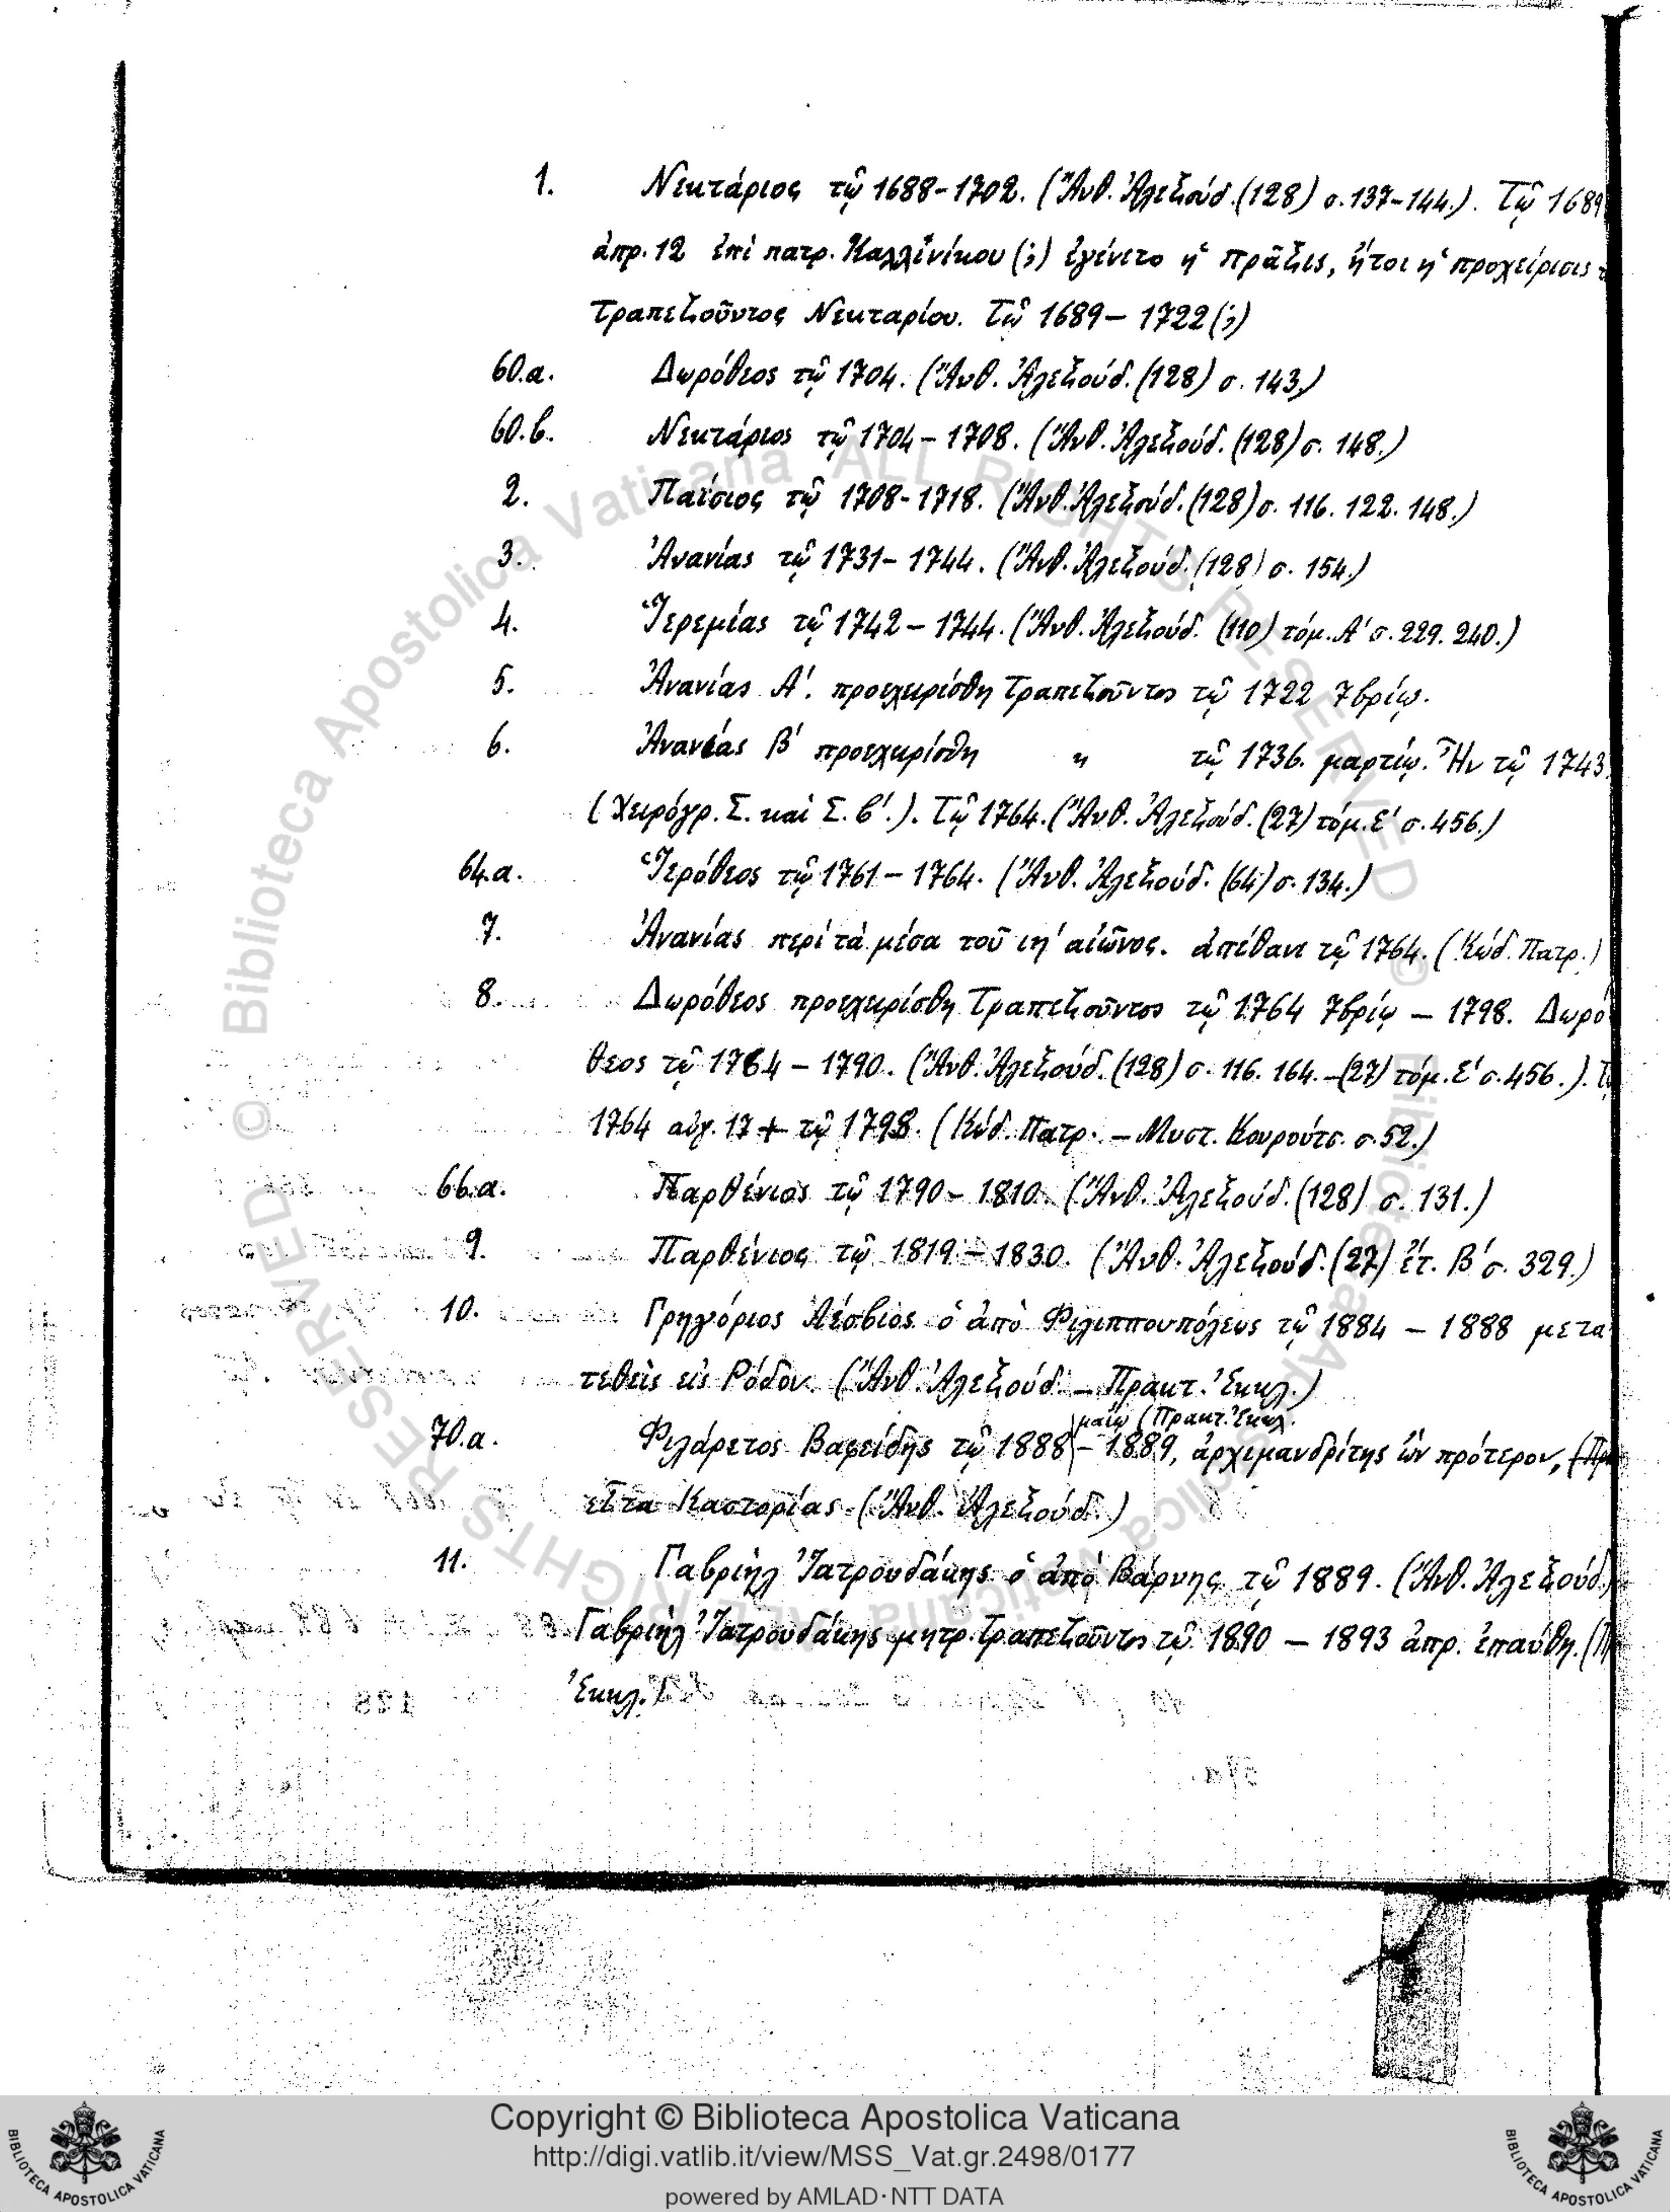 1. Νεκτάριος τῷ 1688-1702. (Ἄνθ. Ἀλεξούδ. (128) σ. 137-144.). Τῷ 1689
ἀπρ. 12 ἐπὶ πατρ. Καλλινίκου (;) ἐγένετο ἡ πρᾶξις, ἤτοι ἡ προχείρισις
Τραπεζοῦντος Νεκταρίου. Τῷ 1689 – 1722 (;)
60.α. Δωρόθεος τῷ 1704. (Ἄνθ. Ἀλεξούδ. (128) σ. 143.)
60.β. Νεκτάριος τῷ 1704 – 1708. (Ἄνθ. Ἀλεξούδ. (128) σ. 148.)
2. Παΐσιος τῷ 1708-1718. (Ἄνθ. Ἀλεξούδ. (128) σ. 116. 122. 148.)
3. Ἀνανίας τῷ 1731 – 1744. (Ἄνθ. Ἀλεξούδ. (128) σ. 154.)
4. Ἱερεμίας τῷ 1742 – 1744. (Ἄνθ. Ἀλεξούδ. (110) τόμ. Α' σ. 229. 240.)
5. Ἀνανίας Α'. προεχειρίσθη Τραπεζοῦντος τῷ 1722 7βρίῳ.
6. Ἀνανίας Β' προεχειρίσθη " τῷ 1736. μαρτίῳ. Ἦν τῷ 1743
(Χειρόγρ. Σ. καὶ Σ. β'.). Τῷ 1764. (Ἄνθ. Ἀλεξούδ. (27) τόμ. Ε' σ. 456.)
64.α. Ἱερόθεος τῷ 1761 – 1764. (Ἄνθ. Ἀλεξούδ. (64) σ. 134.)
7. Ἀνανίας περὶ τὰ μέσα τοῦ ιη' αἰῶνος. ἀπέθανε τῷ 1764. (Κώδ. Πατρ.)
8. Δωρόθεος προεχειρίσθη Τραπεζοῦντος τῷ 1764 7βρίῳ – 1798. Δωρό
θεος τῷ 1764 – 1790. (Ἄνθ. Ἀλεξούδ. (128) σ. 116. 164. – (27) τόμ. Ε' σ. 456.).
1764 αὐγ. 17 + τῷ 1798. (Κώδ. Πατρ. – Μυστ. Κουρούτσ. σ. 52.)
66.α. Παρθένιος τῷ 1790 – 1810. (Ἄνθ. Ἀλεξούδ. (128) σ. 131.)
9. Παρθένιος τῷ 1819 – 1830. (Ἄνθ. Ἀλεξούδ. (27) ἔτ. Β' σ. 329.)
10. Γρηγόριος Λέσβιος ὁ ἀπὸ Φιλιππουπόλεως τῷ 1884 – 1888 μετα
τεθεὶς εἰς Ρόδον. (Ἄνθ. Ἀλεξούδ. – Πρακτ. Ἐκκλ.)
μαΐῳ (Πρακτ. Ἐκκλ.
70.α. Φιλάρετος Βαφείδης τῷ 1888 – 1889, ἀρχιμανδρίτης ὢν πρότερον,
εἶτα Καστορίας (Ἄνθ. Ἀλεξούδ.)
11. Γαβριὴλ Ἰατρουδάκης ὁ ἀπὸ Βάρνης τῷ 1889. (Ἄνθ. Ἀλεξούδ.)
Γαβριὴλ Ἰατρουδάκης μητρ. Τραπεζοῦντος τῷ 1890 – 1893 ἀπρ. ἐπαύθη.
Ἐκκλ.)
© Biblioteca Apostolica Vaticana ALL RIGHTS RESERVED
Copyright © Biblioteca Apostolica Vaticana
http://digi.vatlib.it/view/MSS_Vat.gr.2498/0177
powered by AMLAD·NTT DATA
BIBLIOTECA APOSTOLICA VATICANA
BIBLIOTECA APOSTOLICA VATICANA